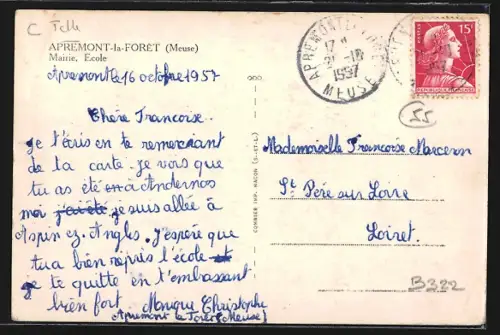 C Telle
APREMONT-la-FORÊT (Meuse)
Mairie, Ecole
Apremont le 16 octobre 1957
Chère Francoise.
je t'écris en te remerciant
de la carte. je vois que
tu as été à Andernos
moi j'ai été je suis allée à
Aspin ez. Angles. J'espère que
tu a bien repris l'école et
je te quitte en t'embrassant
bien fort. Monique Christophe
Apremont la Forêt (Meuse)
900
COMBIER IMP. MACON (S.-ET-L.)
APREMONT LA FORET
17 H
21-10
1957
MEUSE
15F
REPUBLIQUE FRANÇAISE
55
Mademoiselle Francoise Marceron
St Père sur Loire
Loiret.
B322